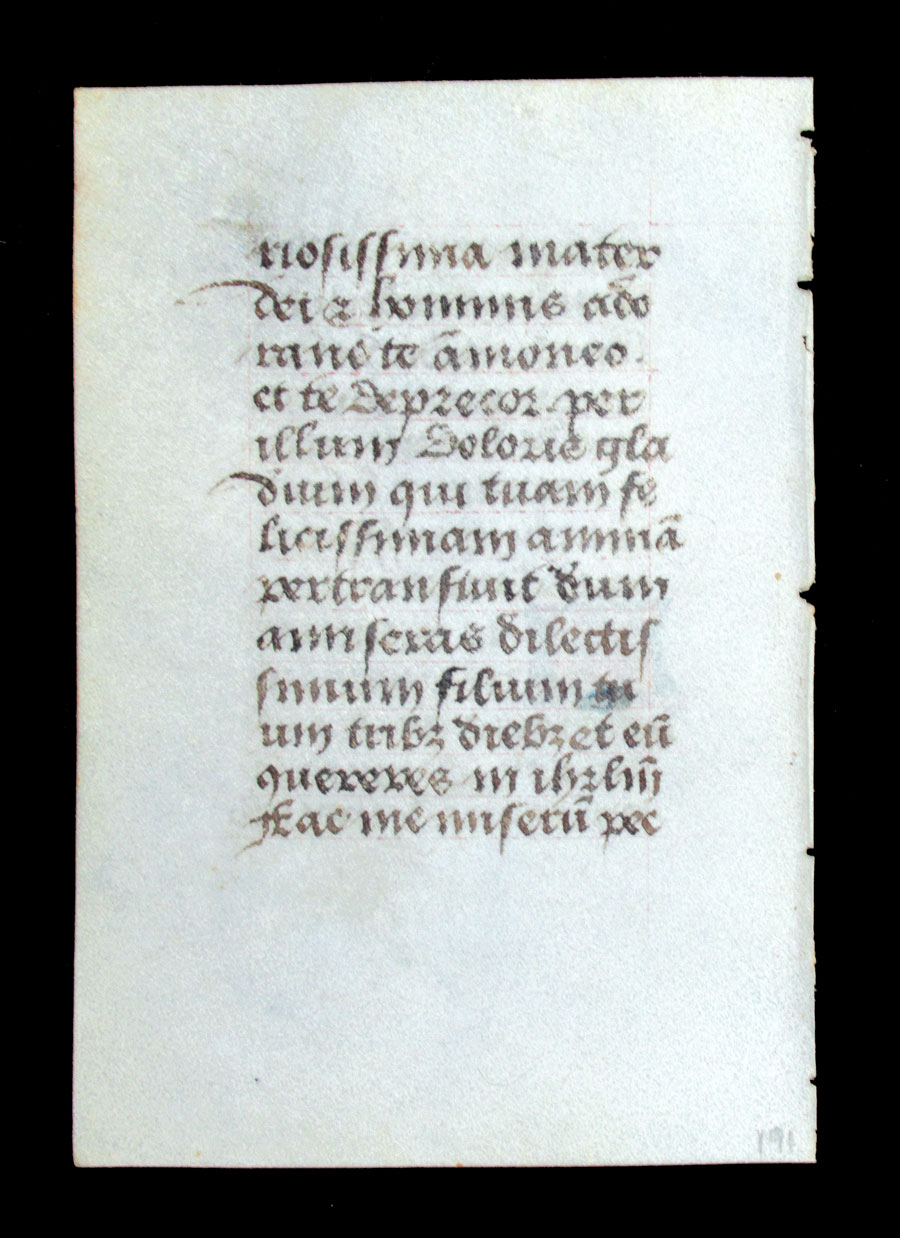 riosissima mater
dei & hominis ado
rando te āmoneo .
et te deprecor per
illum doloris gla
dium qui tuam fe
licissimam animā
pertransiuit dum
amiseras dilectis
simum filium tu
um tribꝫ diebꝫ et eū
quereres in ihrl̄m
Fac me miserū pec
191